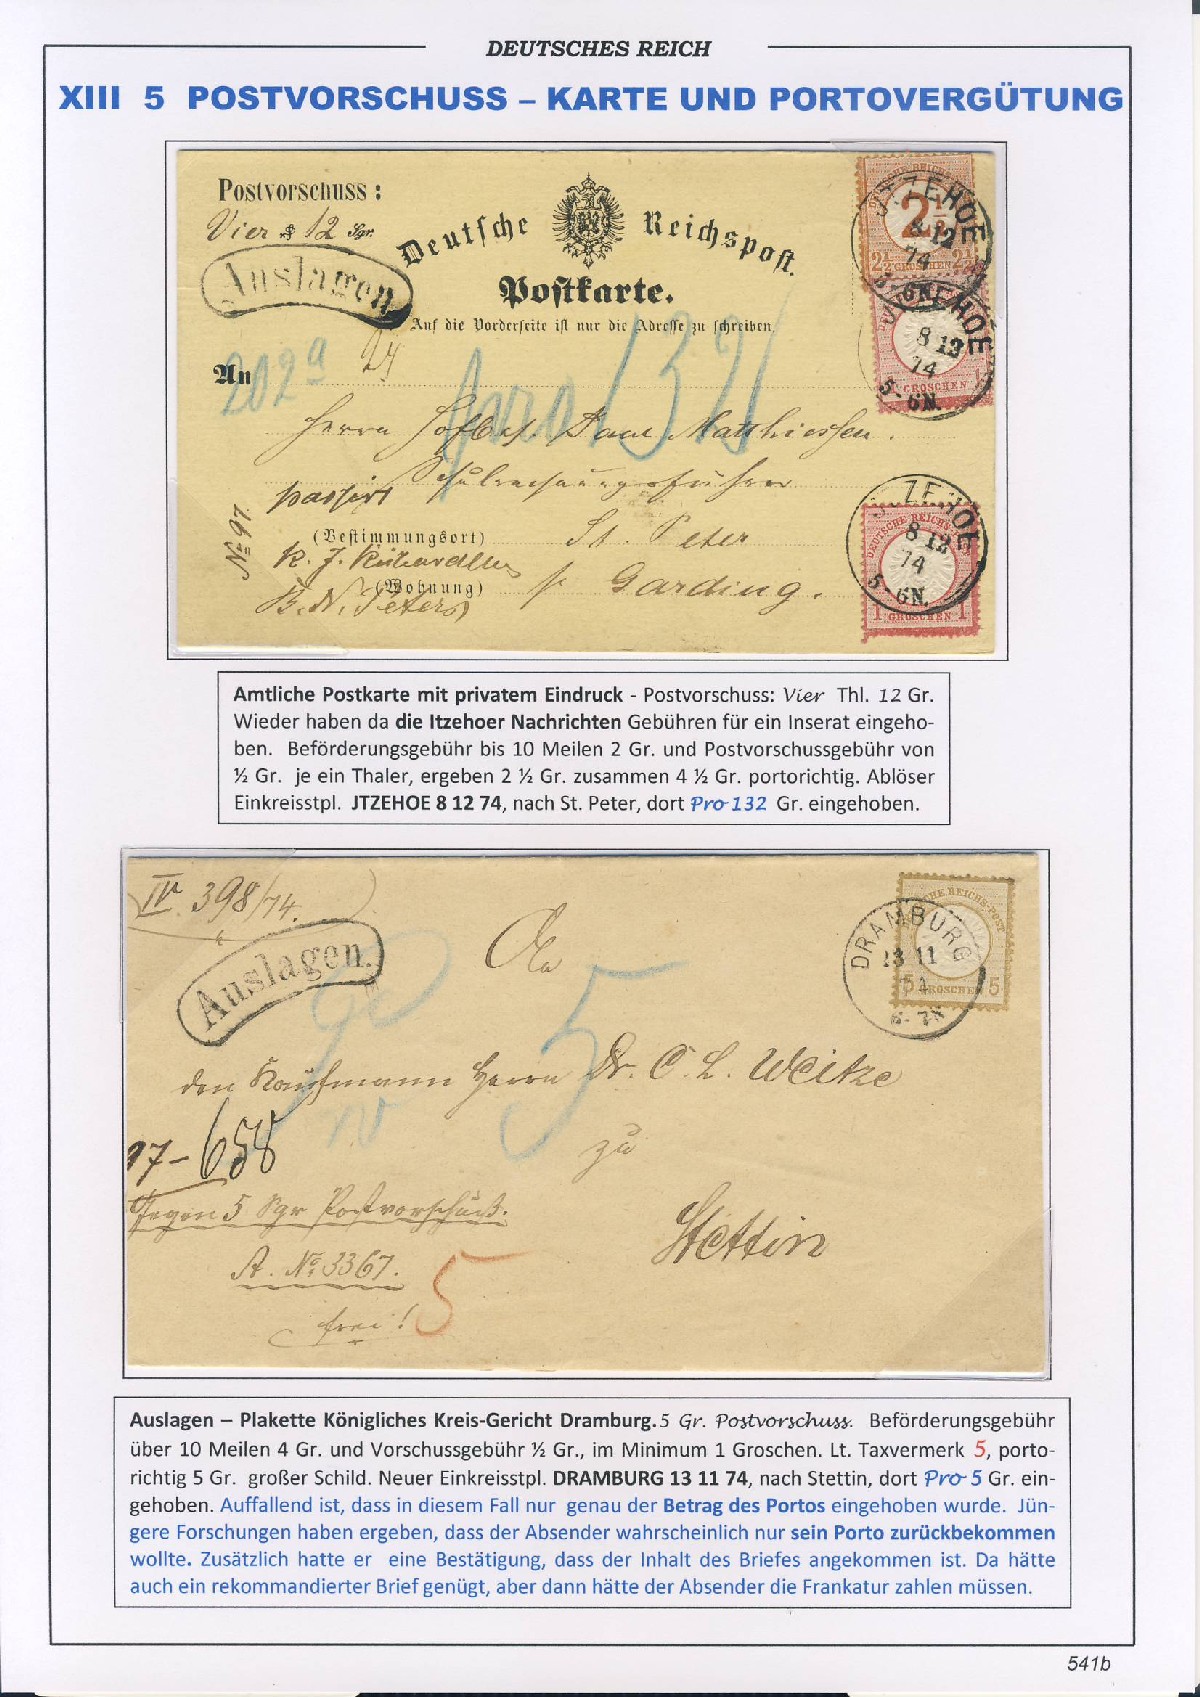 DEUTSCHES REICH
XIII 5 POSTVORSCHUSS – KARTE UND PORTOVERGÜTUNG
Postvorschuss:
Vier 12 Sgr.
Auslagen
Deutsche Reichspost.
Postkarte.
Auf die Vorderseite ist nur die Adresse zu schreiben.
2½
2½ GROSCHEN 2½
JTZEHOE
8 12
74
5-6N.
JTZEHOE
8 12
74
5-6N.
GROSCHEN
202 a
An
24
pro 132
Herrn Hofbes. Daue Matthiessen.
passirt
St. Peter
(Bestimmungsort)
No 97.
(Wohnung)
B. N. Peters
p Garding.
JTZEHOE
8 12
74
5-6N.
DEUTSCHE REICHS-POST
1 GROSCHEN 1
Amtliche Postkarte mit privatem Eindruck - Postvorschuss: Vier Thl. 12 Gr.
Wieder haben da die Itzehoer Nachrichten Gebühren für ein Inserat eingeho-
ben. Beförderungsgebühr bis 10 Meilen 2 Gr. und Postvorschussgebühr von
½ Gr. je ein Thaler, ergeben 2 ½ Gr. zusammen 4 ½ Gr. portorichtig. Ablöser
Einkreisstpl. JTZEHOE 8 12 74, nach St. Peter, dort Pro 132 Gr. eingehoben.
IV. 398/74.
Auslagen.
DRAMBURG
13 11
5 GROSCHEN 5
An
5
den Kaufmann Herrn Dr. C. L. Weitze
zu
17-658
Gegen 5 Sgr Postvorschuß.
Stettin
A. No. 3367.
frei!
5
Auslagen – Plakette Königliches Kreis-Gericht Dramburg. 5 Gr. Postvorschuss. Beförderungsgebühr
über 10 Meilen 4 Gr. und Vorschussgebühr ½ Gr., im Minimum 1 Groschen. Lt. Taxvermerk 5, porto-
richtig 5 Gr. großer Schild. Neuer Einkreisstpl. DRAMBURG 13 11 74, nach Stettin, dort Pro 5 Gr. ein-
gehoben. Auffallend ist, dass in diesem Fall nur genau der Betrag des Portos eingehoben wurde. Jün-
gere Forschungen haben ergeben, dass der Absender wahrscheinlich nur sein Porto zurückbekommen
wollte. Zusätzlich hatte er eine Bestätigung, dass der Inhalt des Briefes angekommen ist. Da hätte
auch ein rekommandierter Brief genügt, aber dann hätte der Absender die Frankatur zahlen müssen.
541b